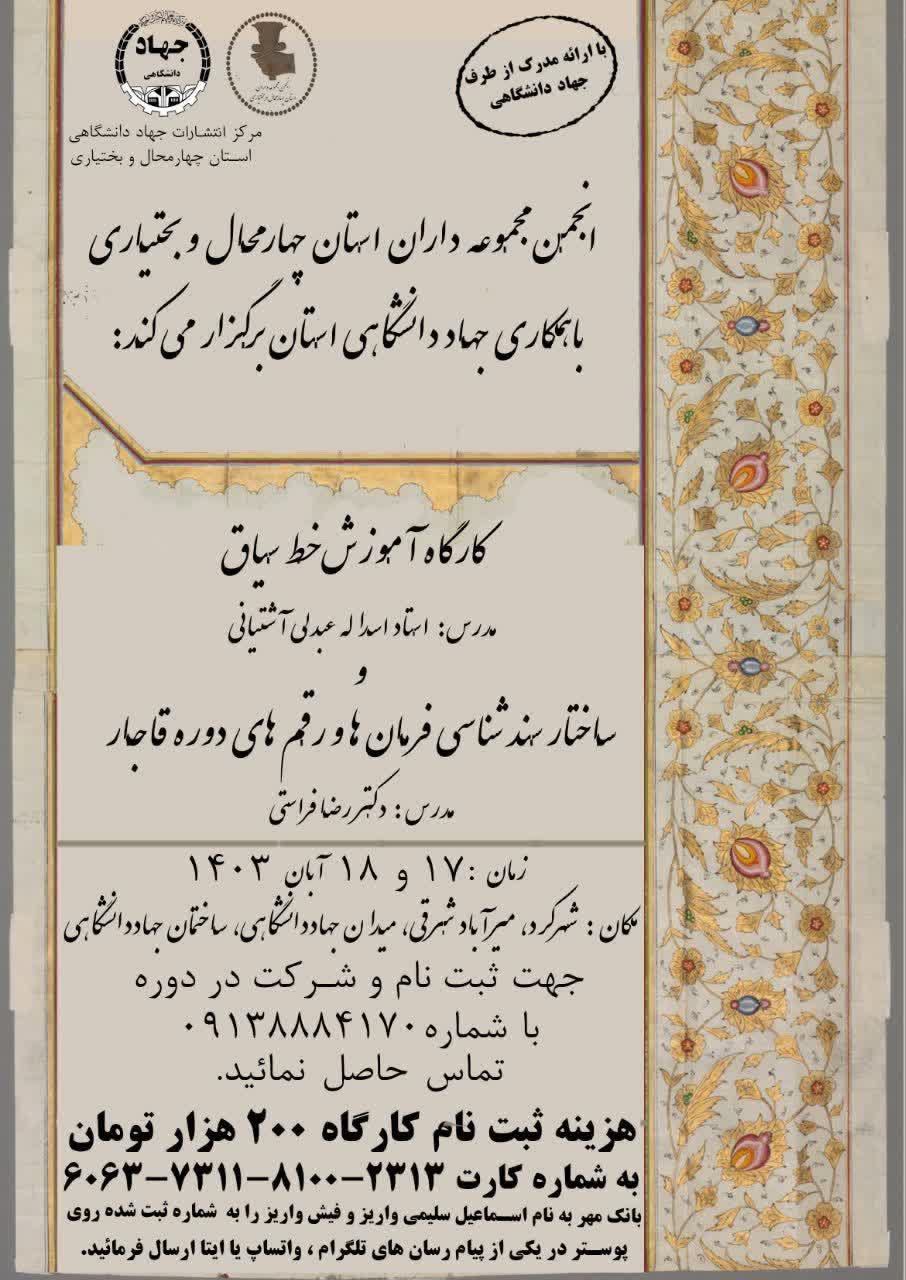 با ارائه مدرک از طرف
جهاد دانشگاهی
جهاد
دانشگاهی
مرکز انتشارات جهاد دانشگاهی
استان چهارمحال و بختیاری
انجمن مجموعه داران استان چهارمحال و بختیاری
با همکاری جهاد دانشگاهی استان برگزار می کند:
کارگاه آموزش خط سیاق
مدرس: استاد اسداله عبدلی آشتیانی
و
ساختار سند شناسی فرمان ها و رقم های دوره قاجار
مدرس: دکتر رضا فراستی
زمان :۱۷ و ۱۸ آبان ۱۴۰۳
مکان : شهرکرد، میرآباد شرقی، میدان جهاددانشگاهی، ساختمان جهاددانشگاهی
جهت ثبت نام و شرکت در دوره
با شماره ۰۹۱۳۸۸۸۴۱۷۰
تماس حاصل نمائید.
هزینه ثبت نام کارگاه ۲۰۰ هزار تومان
به شماره کارت ۲۳۱۳-۸۱۰۰-۷۳۱۱-۶۰۶۳
بانک مهر به نام اسماعیل سلیمی واریز و فیش واریز را به شماره ثبت شده روی
پوستر در یکی از پیام رسان های تلگرام ، واتساپ یا ایتا ارسال فرمائید.